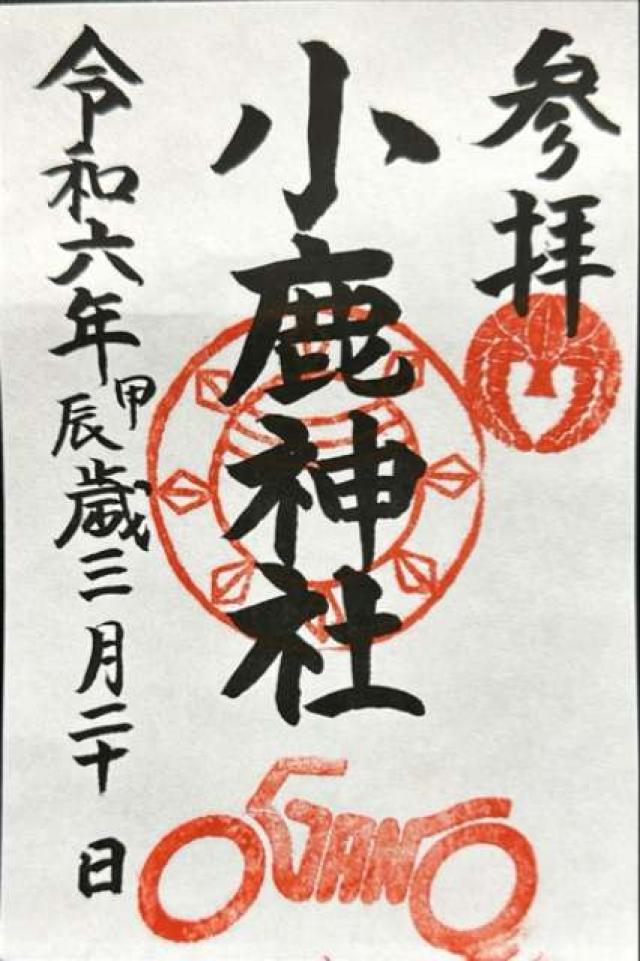 参拝
小鹿神社
令和六年甲辰歳三月二十日
OGANO